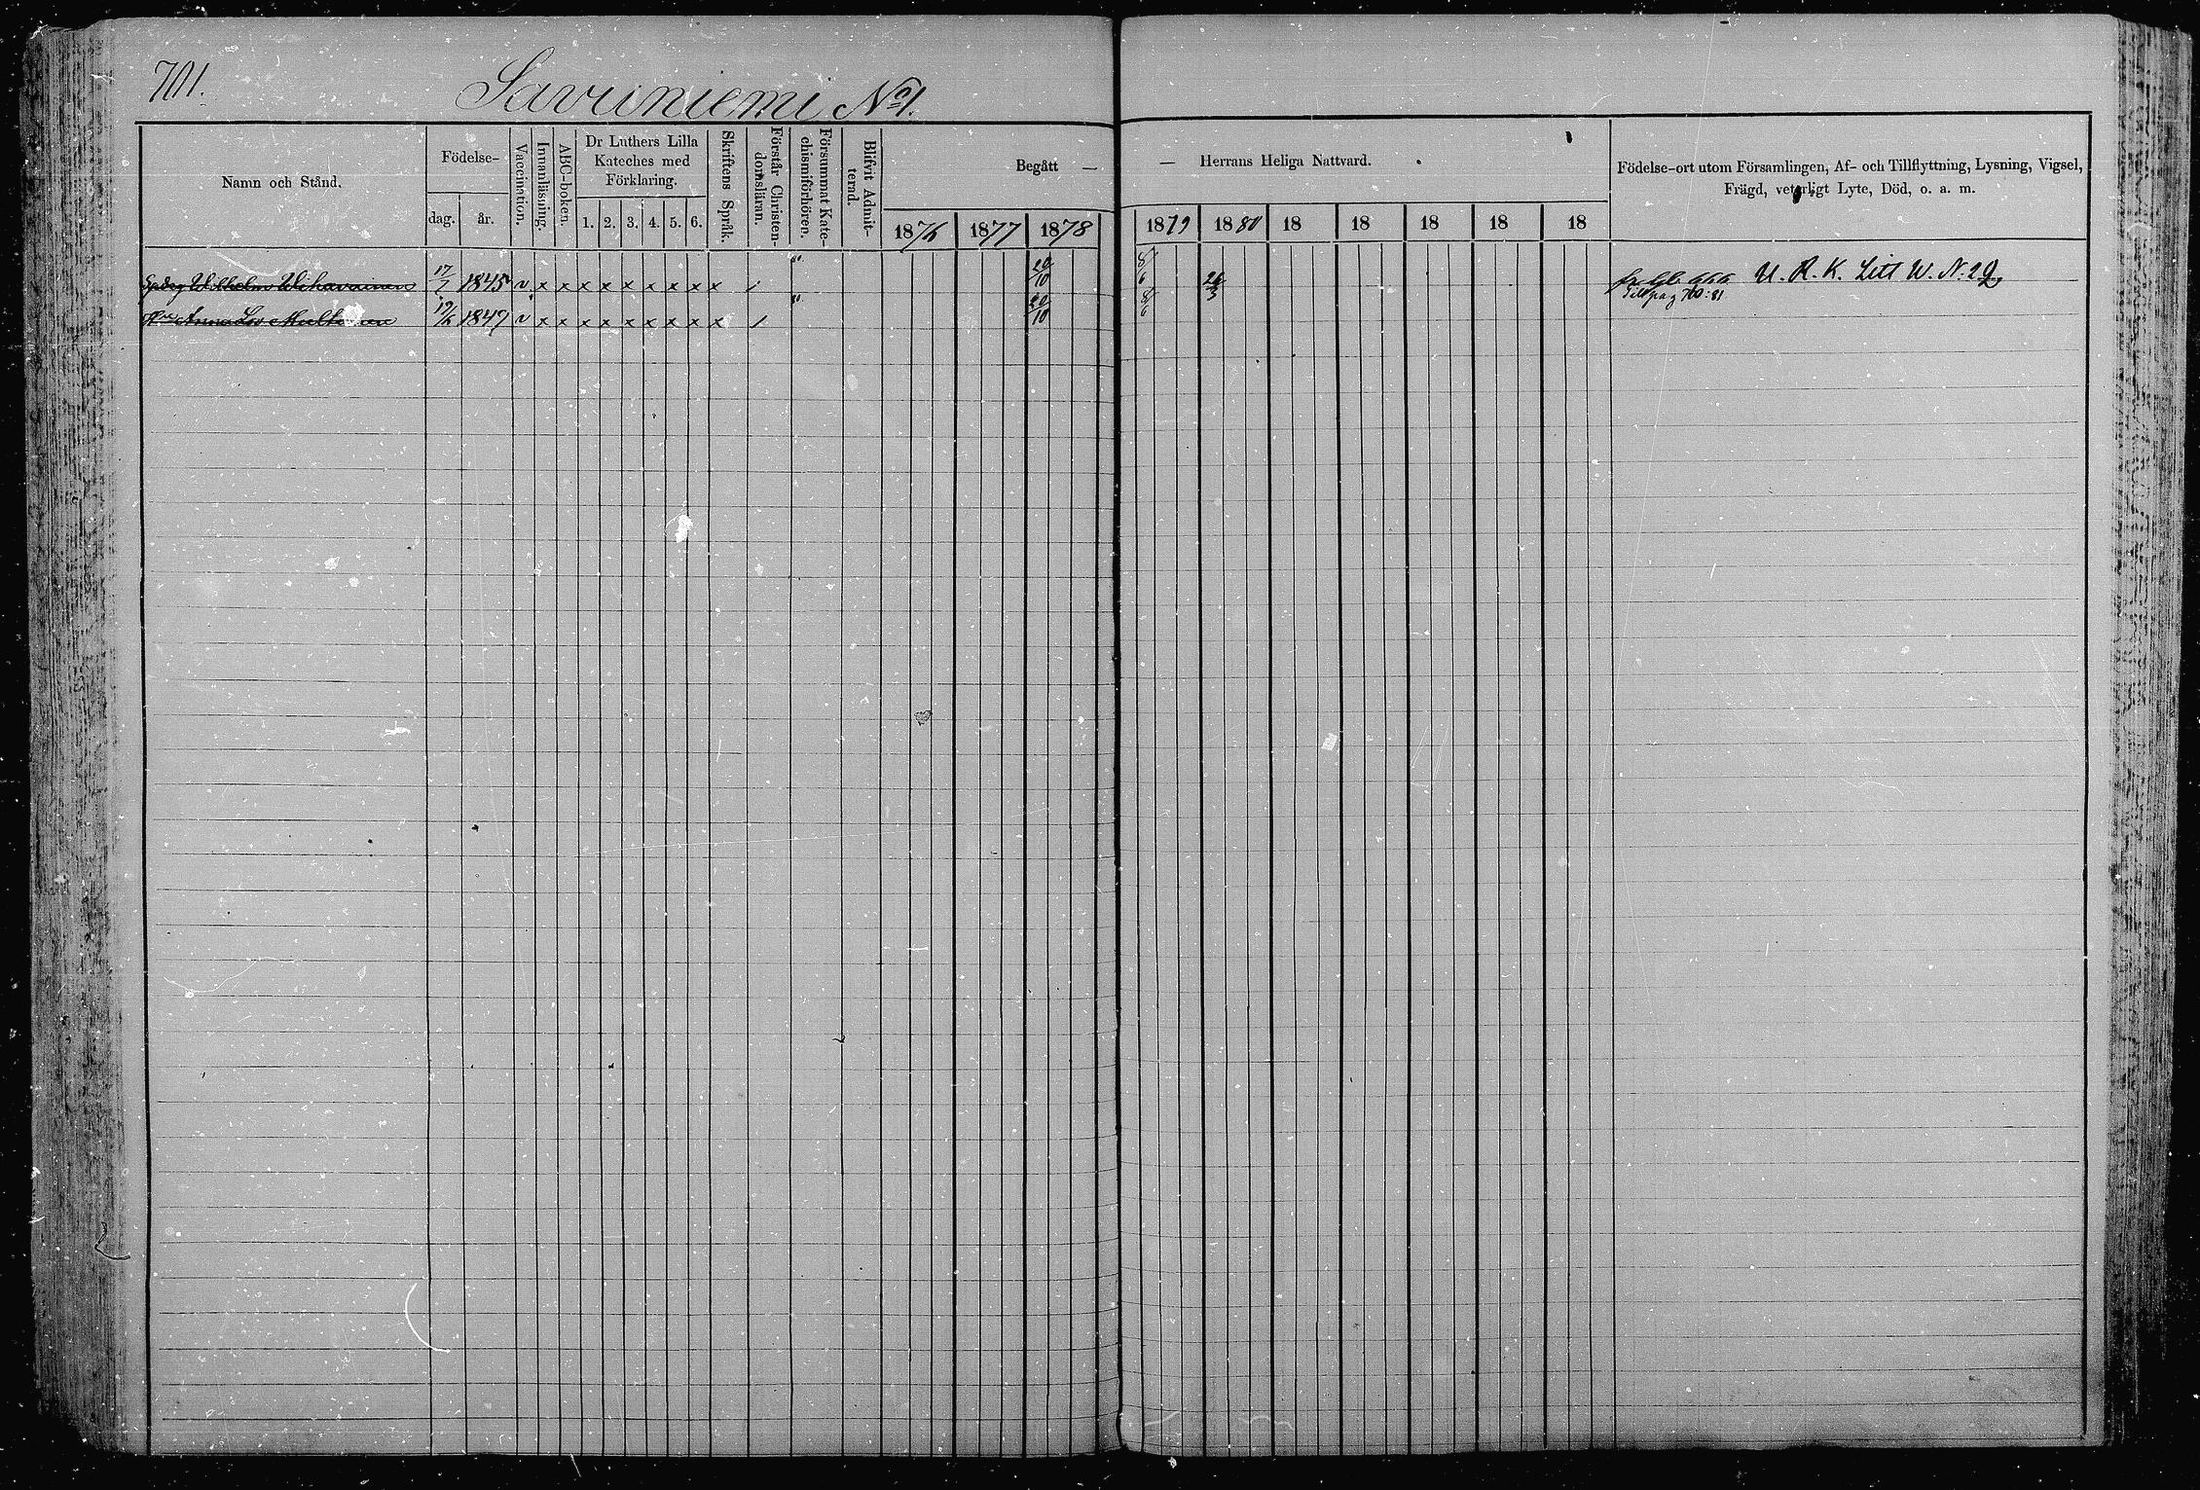 701.
Savuniemi No 1.
Namn och Stånd.
Födelse-
dag.
år.
Vaccination.
Innanläsning.
ABC-boken.
Dr Luthers Lilla
Kateches med
Förklaring.
1. 2. 3. 4. 5. 6.
Skriftens Språk.
Förstår Christen-
domsläran.
Försummat Kate-
chismiförhören.
Blifvit Admit-
terad.
Begått —
1876 1877 1878
— Herrans Heliga Nattvard.
1879 1880 18 18 18 18 18
Födelse-ort utom Församlingen, Af- och Tillflyttning, Lysning, Vigsel,
Frägd, veterligt Lyte, Död, o. a. m.
Wilhelm Wihavainen 17/7 1845 v x x x x x x x x x / " 20/10 8/6 24/3 U. R. K. Litt W. N: 29
Till pag 760: 81
Anna Lov. 19/6 1849 v x x x x x x x x x / " 20/10 8/6